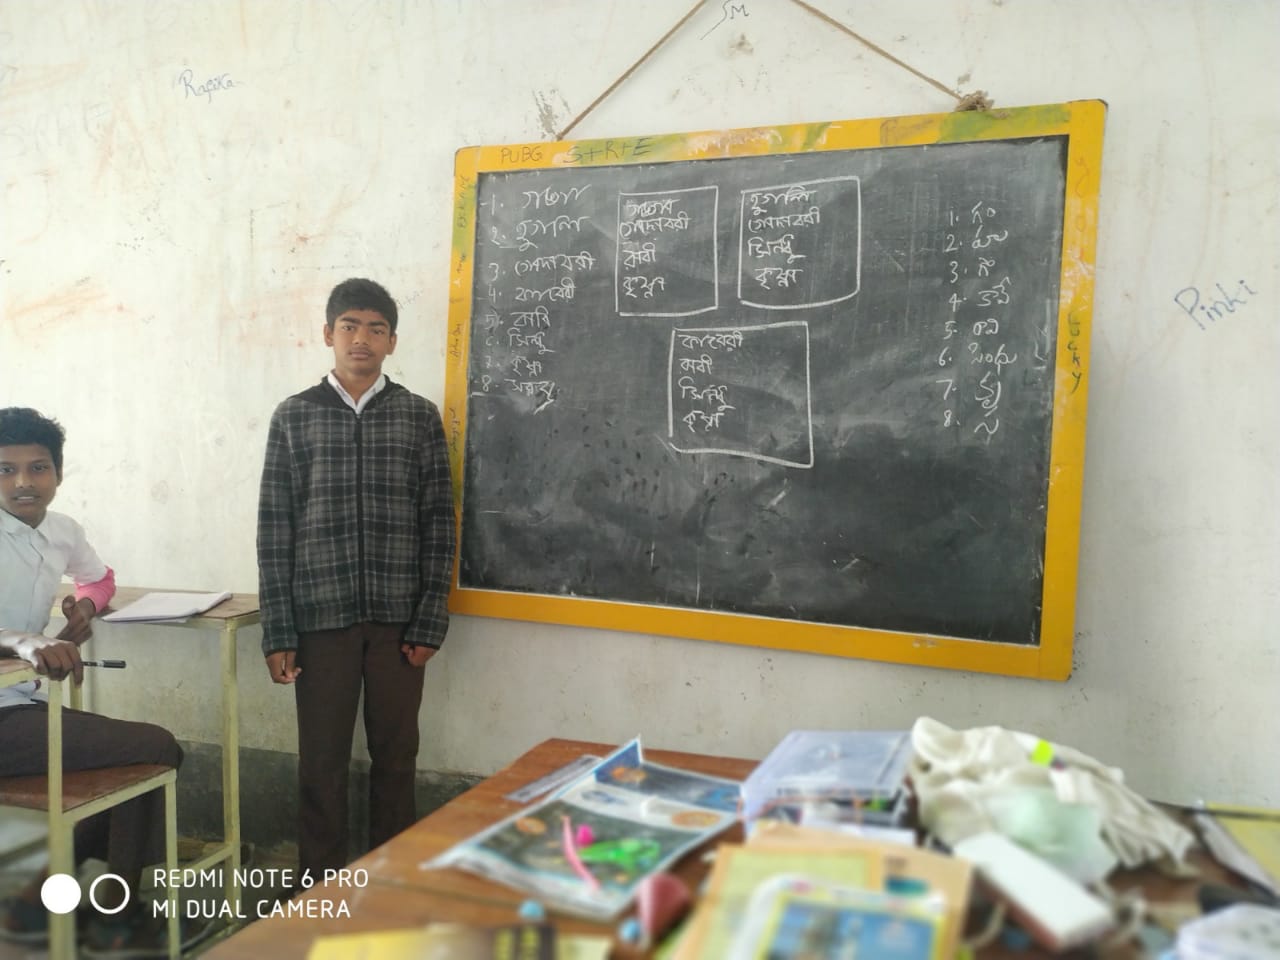 SM
Rafika
PUBG S+R+E
1. গঙ্গা
2. হুগলি
3. গোদাবরী
4. কাবেরী
5. রাবি
6. সিন্ধু
7. কৃষ্ণা
8.
গোদাবরী
রাবী
কৃষ্ণা
হুগলি
গোদাবরী
সিন্ধু
কৃষ্ণা
কাবেরী
রাবী
সিন্ধু
কৃষ্ণা
1. గం
2. హు
3. గో
4. కావే
5. రావి
6. సింధు
7. కృ
8. స
Pinki
LUCKY
REDMI NOTE 6 PRO
MI DUAL CAMERA